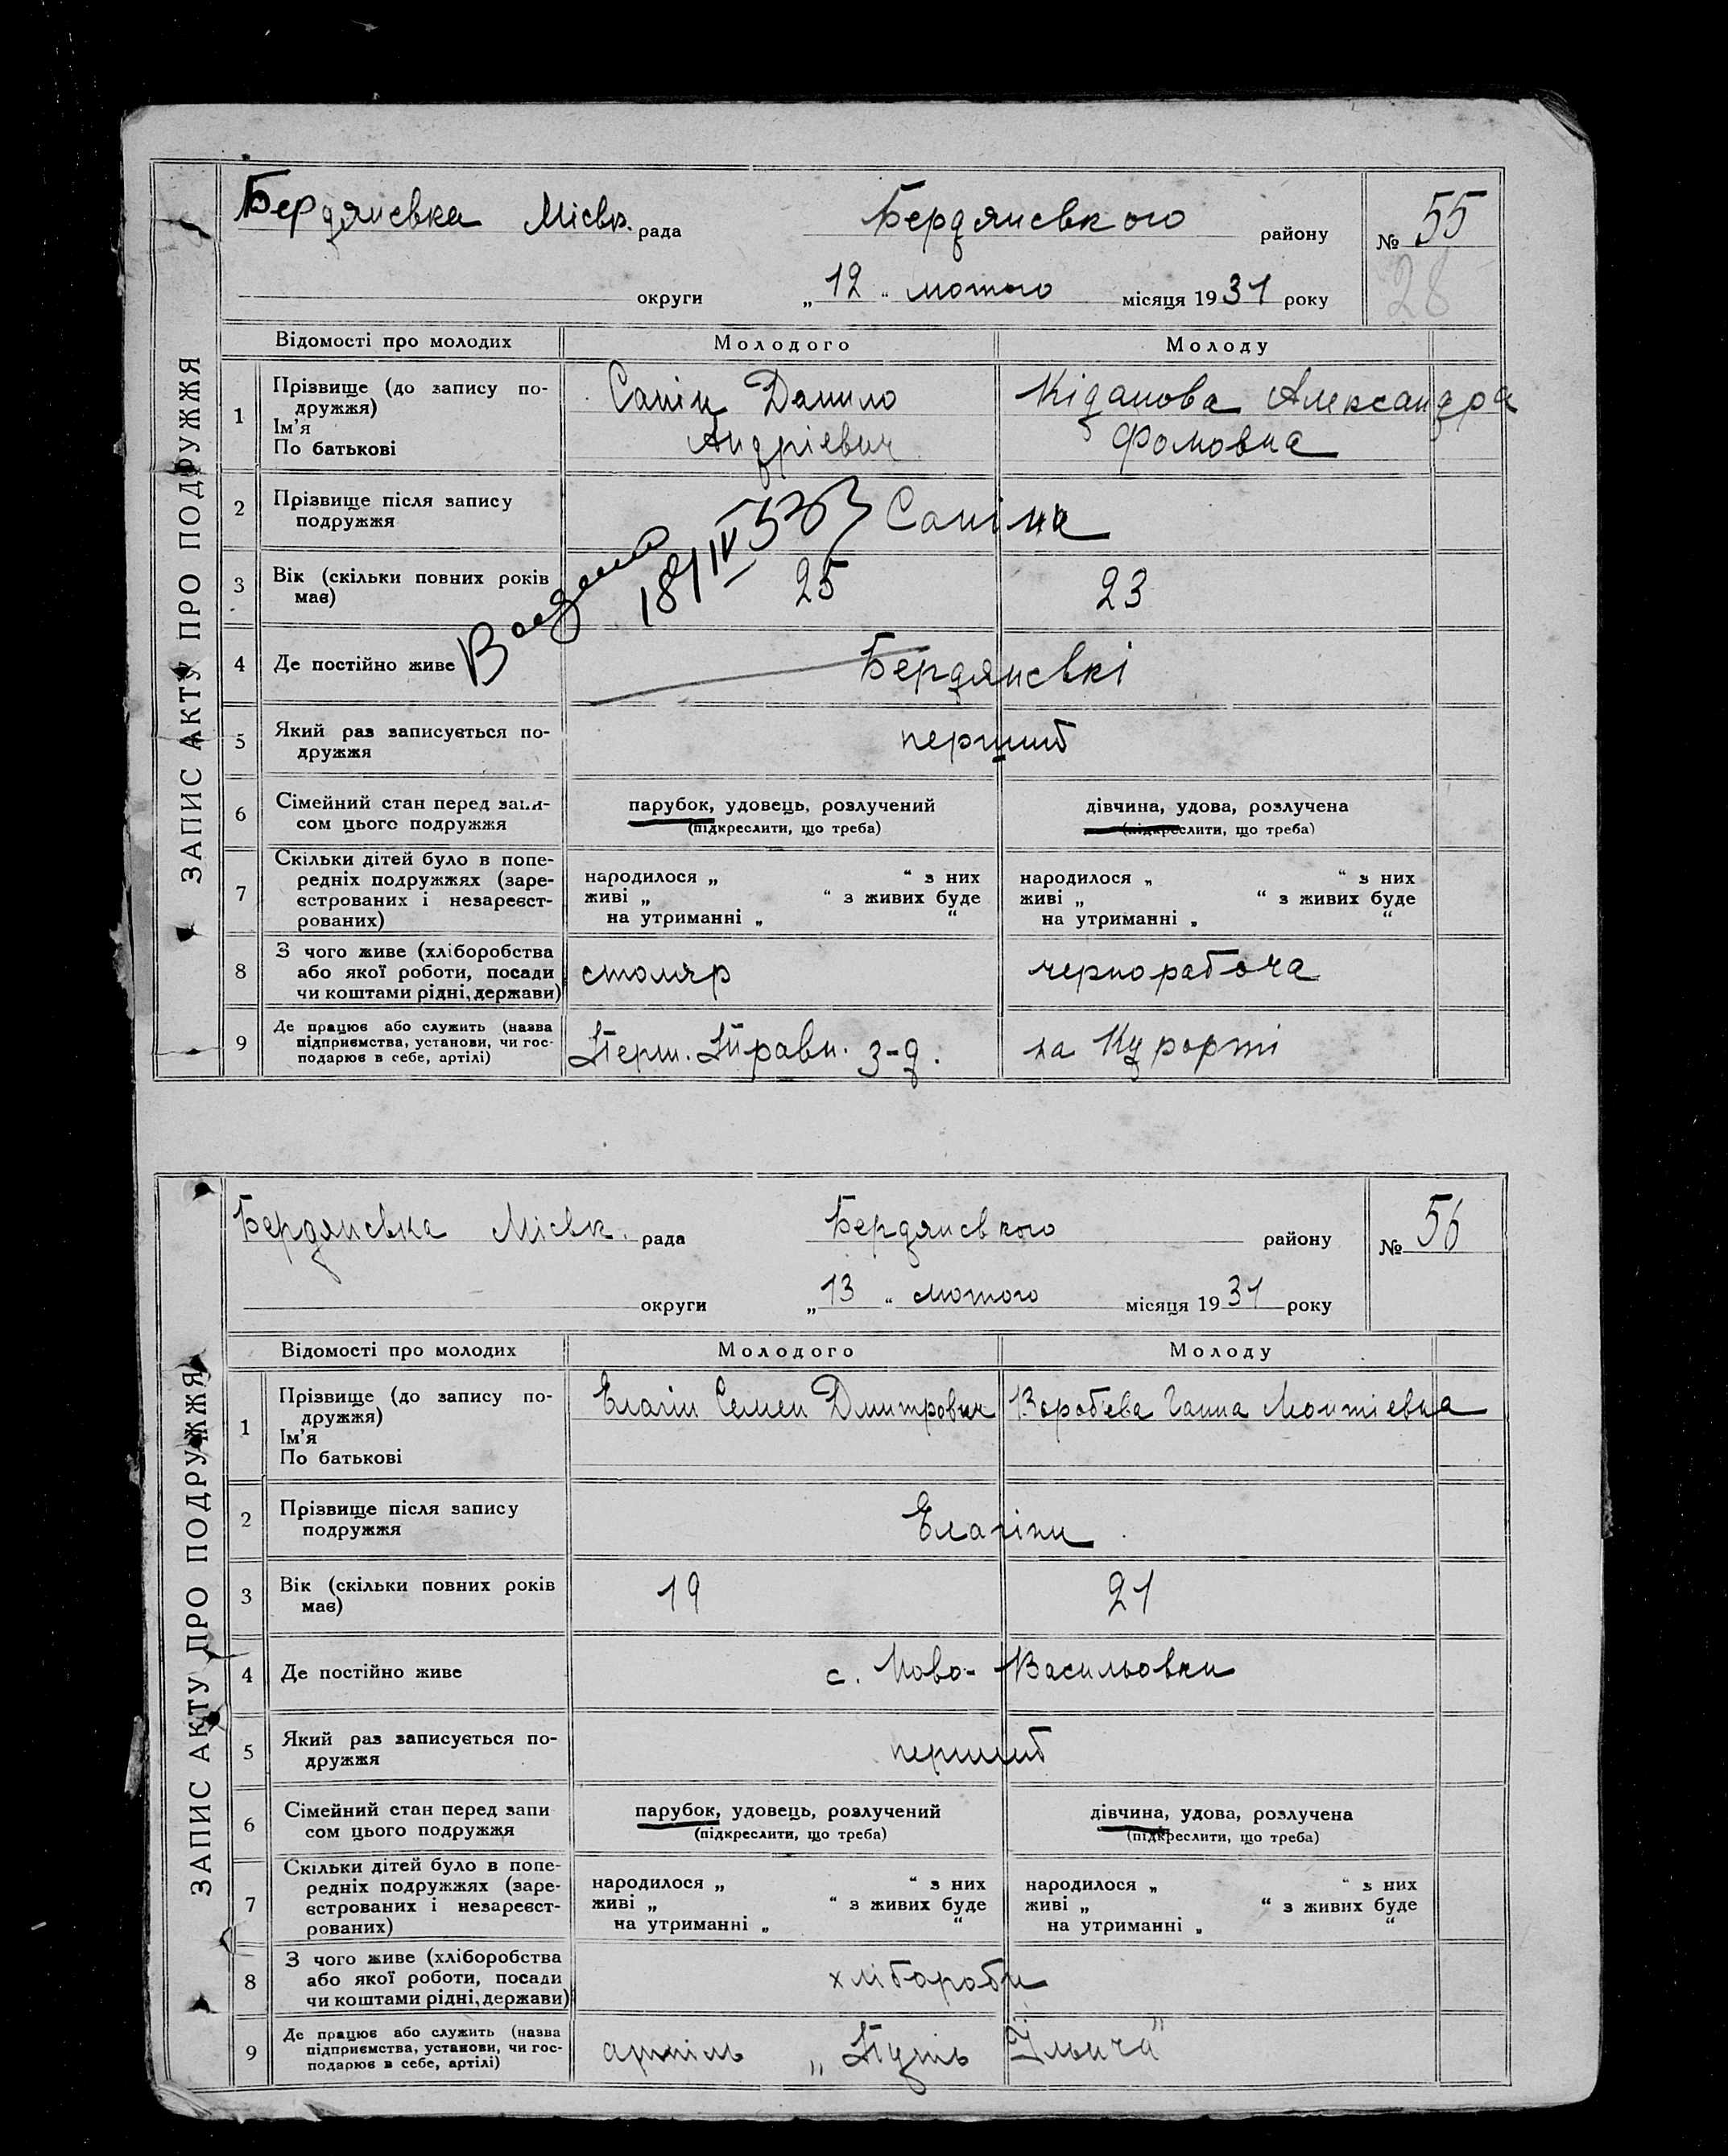 ЗАПИС АКТУ ПРО ПОДРУЖЖЯ
Бердянська Міськ. рада Бердянського району № 55
28
округи „12“ лютого місяця 1931 року
Відомості про молодих Молодого Молоду
1 Прізвище (до запису по-
дружжя)
Ім'я
По батькові
Сапін Данило
Андріевич
Кіданова Александра
Фомовна
2 Прізвище після запису
подружжя
Сапіна
18/IV 53
3 Вік (скільки повних років
має)
25 23
4 Де постійно живе Бердянські
5 Який раз записується по-
дружжя
перший
6 Сімейний стан перед запи-
сом цього подружжя
парубок, удовець, розлучений
(підкреслити, що треба)
дівчина, удова, розлучена
(підкреслити, що треба)
7 Скільки дітей було в попе-
редніх подружжях (заре-
єстрованих і незареєст-
рованих)
народилося „ “ з них
живі „ “ з живих буде
на утриманні „ “
народилося „ “ з них
живі „ “ з живих буде
на утриманні „ “
8 З чого живе (хліборобства
або якої роботи, посади
чи коштами рідні, держави)
столяр чернорабоча
9 Де працює або служить (назва
підприємства, установи, чи гос-
подарює в себе, артілі)
Перш. Травн. з-д. на Курорті
ЗАПИС АКТУ ПРО ПОДРУЖЖЯ
Бердянська Міськ. рада Бердянського району № 56
округи „13“ лютого місяця 1931 року
Відомості про молодих Молодого Молоду
1 Прізвище (до запису по-
дружжя)
Ім'я
По батькові
Елагін Семен Дмитрович Вороб'ева Ганна
2 Прізвище після запису
подружжя
Елагіни
3 Вік (скільки повних років
має)
19 21
4 Де постійно живе с. Ново-Васильовки
5 Який раз записується по-
дружжя
перший
6 Сімейний стан перед запи
сом цього подружжя
парубок, удовець, розлучений
(підкреслити, що треба)
дівчина, удова, розлучена
(підкреслити, що треба)
7 Скільки дітей було в попе-
редніх подружжях (заре-
єстрованих і незареєст-
рованих)
народилося „ “ з них
живі „ “ з живих буде
на утриманні „ “
народилося „ “ з них
живі „ “ з живих буде
на утриманні „ “
8 З чого живе (хліборобства
або якої роботи, посади
чи коштами рідні, держави)
хлібороби
9 Де працює або служить (назва
підприємства, установи, чи гос-
подарює в себе, артілі)
артіль „Путь Ільича"